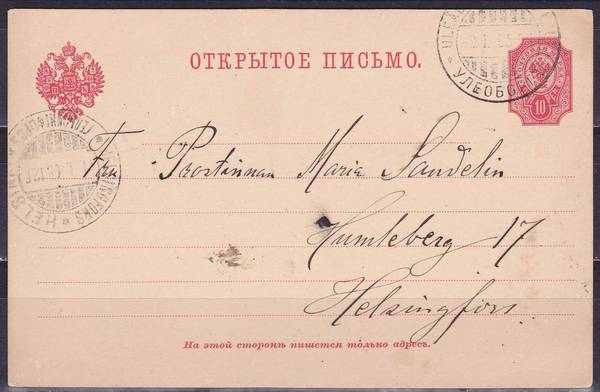 ОТКРЫТОЕ ПИСЬМО.
УЛЕОБОРГ
10 PEN
ГЕЛЬСИНГФОРСЪ
HELSINGFORS
Fru Prostinnan Maria Sandelin
Humleberg 17
Helsingfors
На этой сторонѣ пишется только адресъ.